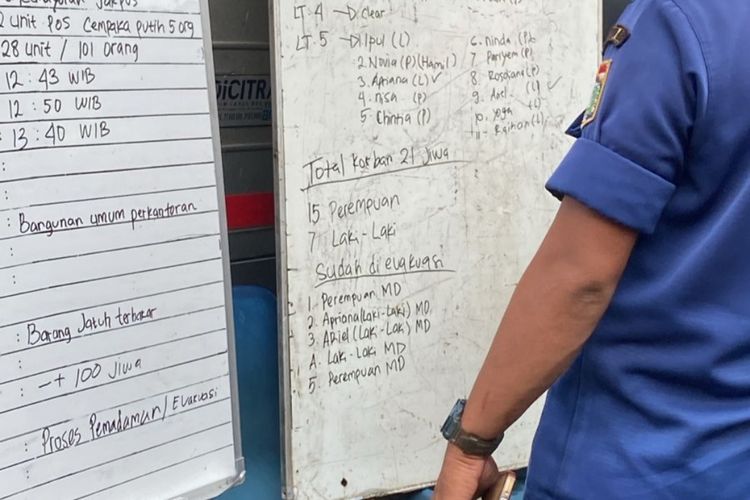 2 unit Pos Cempaka putih 5 org
28 unit / 101 orang
12 : 43 WIB
: 12 : 50 WIB
: 13 : 40 WIB
:
:
: Bangunan umum perkantoran
:
:
: Barang Jatuh terbakar
:
: -+ 100 Jiwa
:
: Proses Pemadaman / Evakuasi
CITRA
LT. 4 → clear
LT. 5 → 1. Ipul (L)
2. Novia (P) (Hamil)
3. Apriana (L) ✓
4. nisa (P)
5. Chintia (P)
6. ninda (P)
7. Pariyem (P)
8. Rosdiana (P)
9. Ariel (L) ✓
10. Yoga (L)
11. Raihan (L)
Total korban 21 Jiwa
15 Perempuan
7 Laki-Laki
Sudah di evakuasi
1. Perempuan MD
2. Apriana (Laki-Laki) MD
3. ARiel (Laki-Laki) MD
4. Laki-Laki MD
5. Perempuan MD